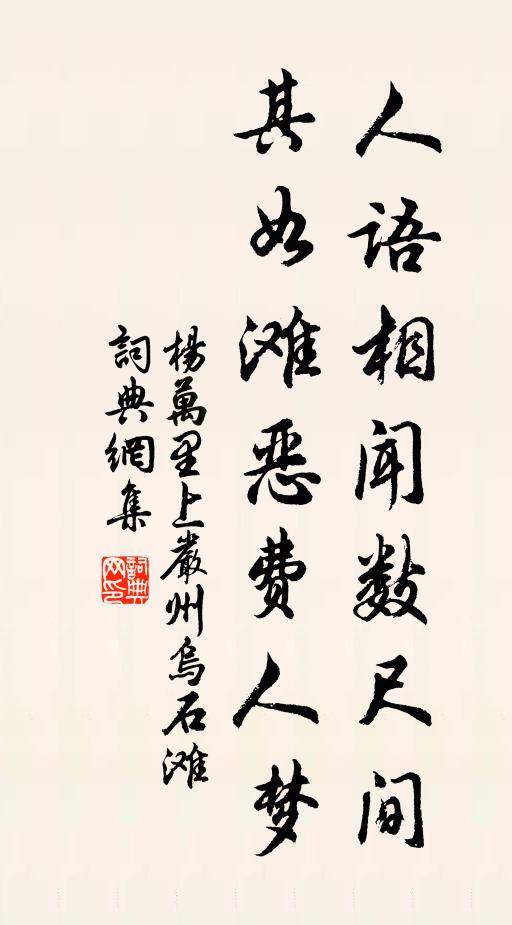 人语相闻数尺间
其如滩恶费人梦
楊萬里上嚴州烏石滩
詞典網集
詞典网印